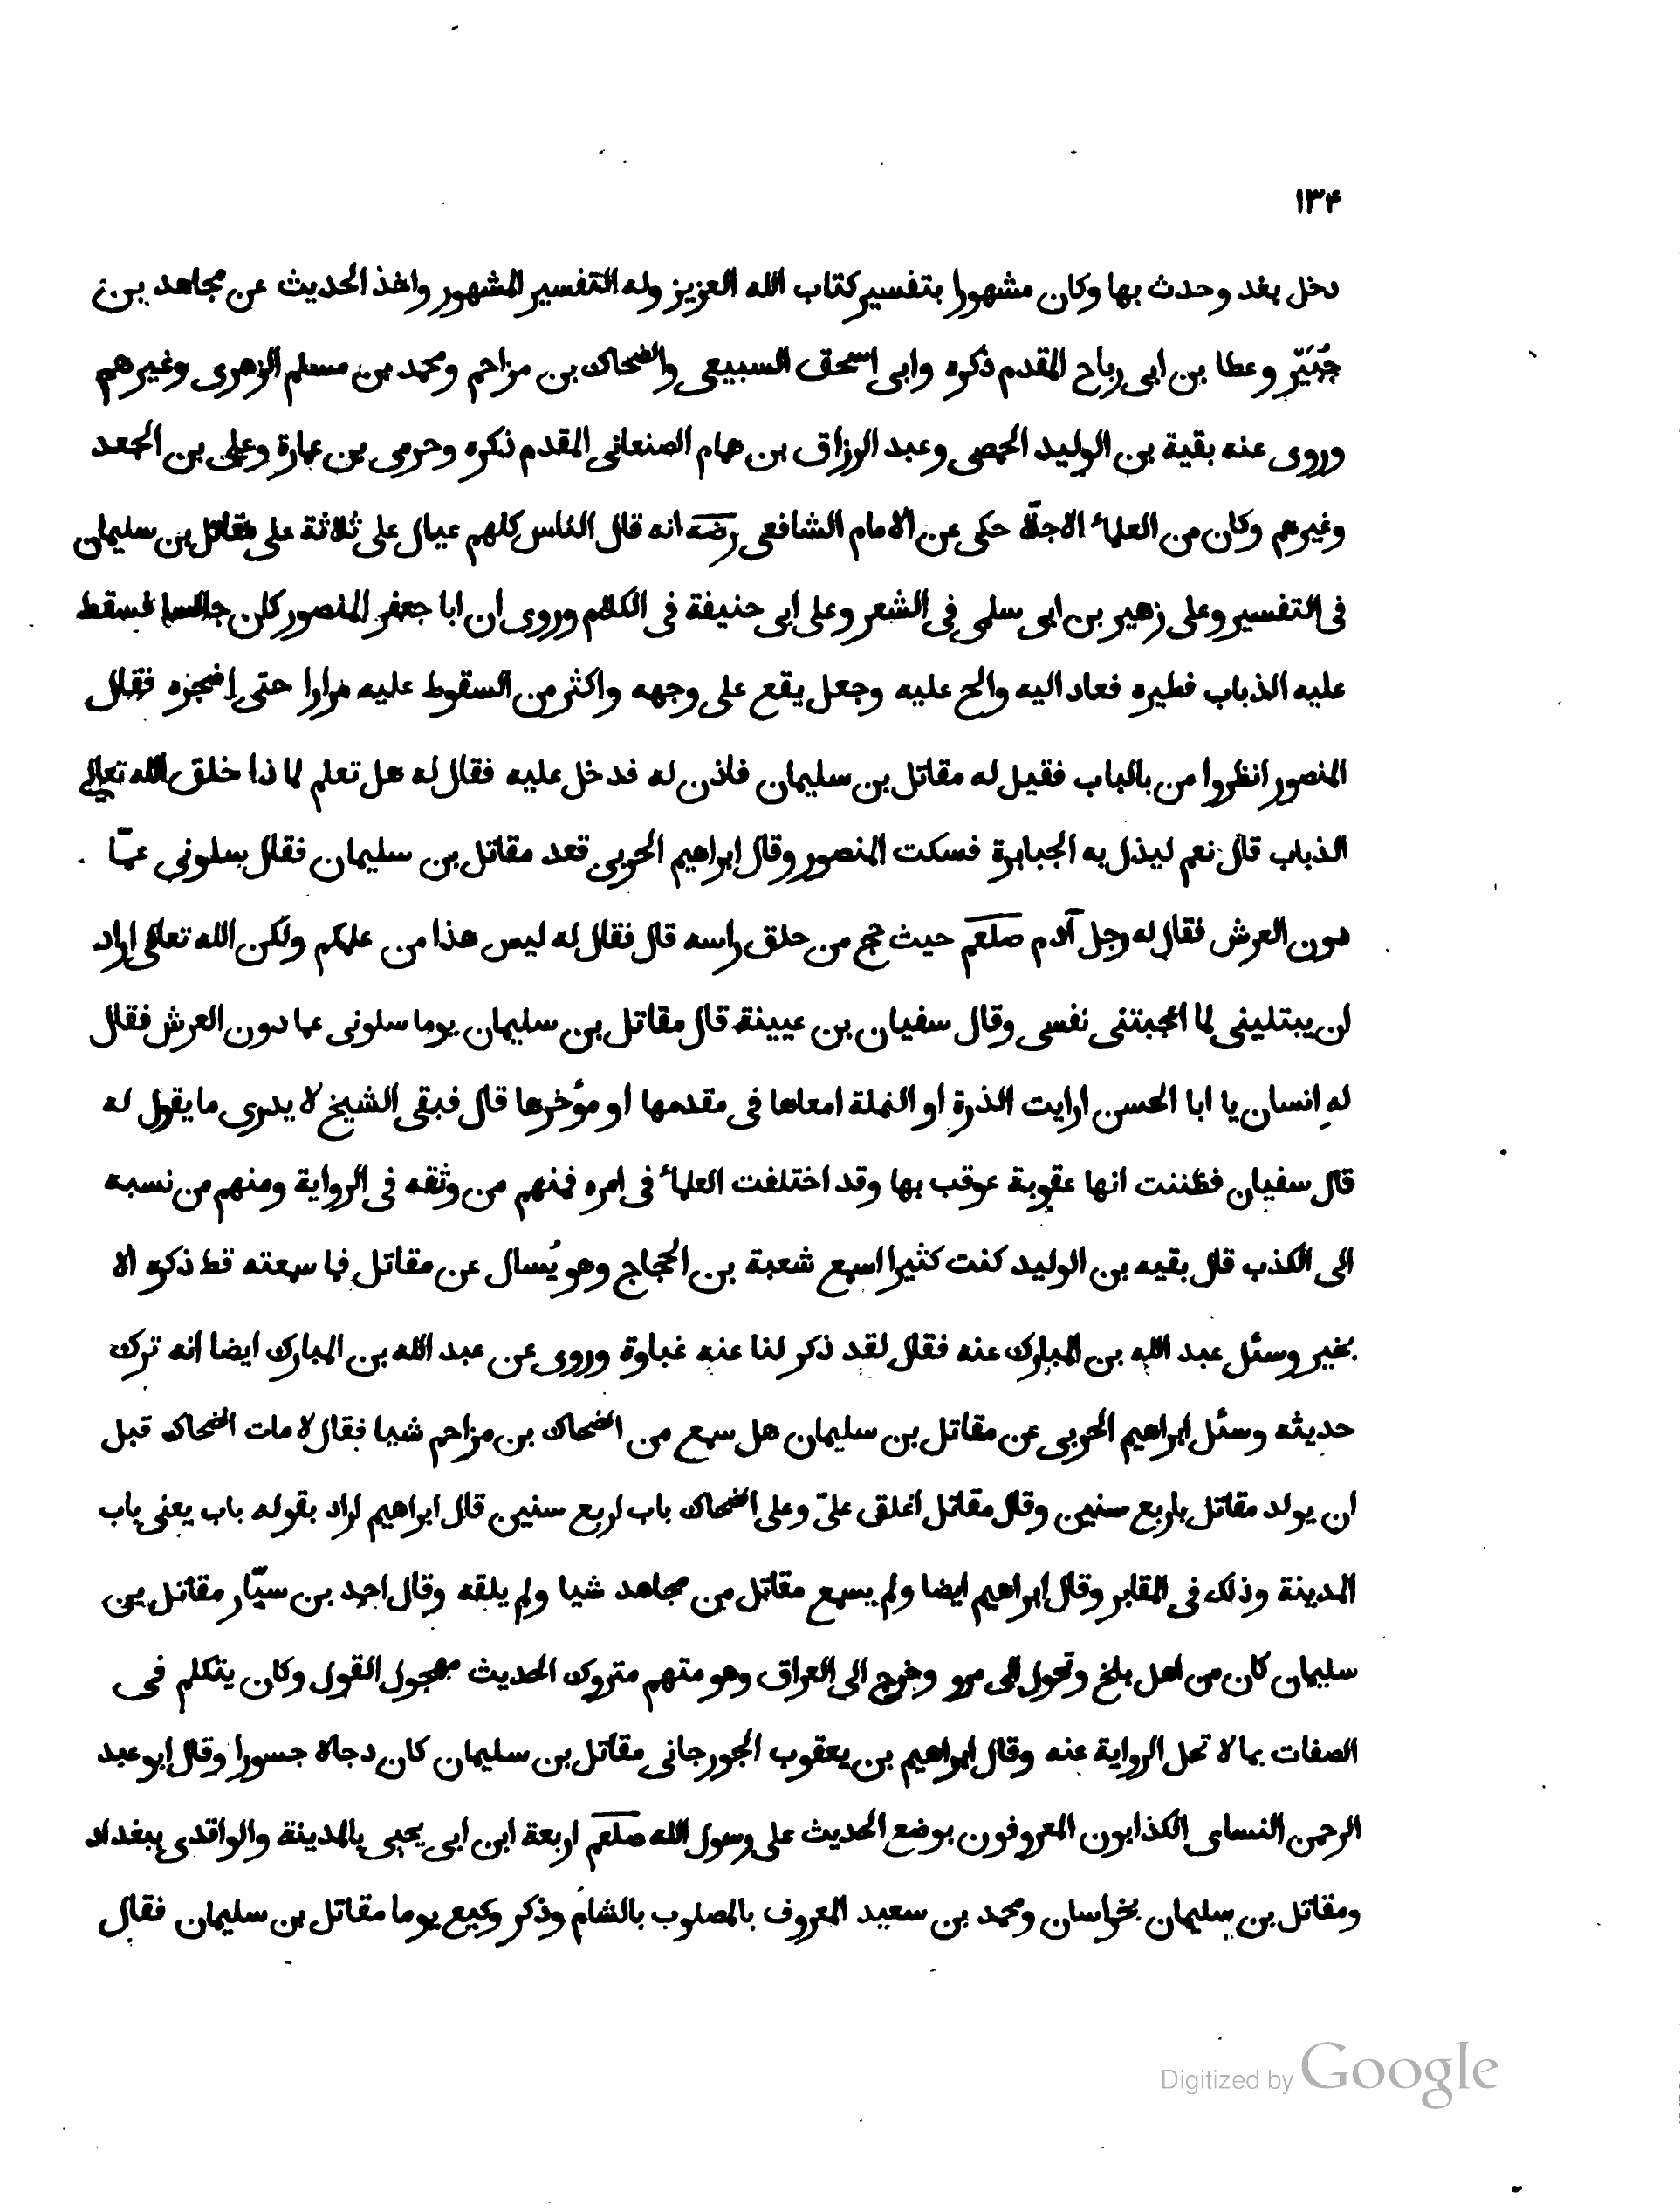 ١٣۴
دخل بغد وحدث بها وكان مشهورا بتفسير كتاب الله العزيز وله التفسير المشهور واخذ الحديث عن مجاهد بن
جُبَيّر وعطا بن ابى رباح المقدم ذكره وابى اسحق السبيعى والضحاك بن مزاحم ومحمد بن مسلم الزهرى وغيرهم
وروى عنه بقية بن الوليد الحمصى وعبد الرزاق بن همام الصنعانى المقدم ذكره وحرمى بن عمارة وعلى بن الجعد
وغيرهم وكان من العلمآ الاجلّا حكى عن الامام الشافعى رضه انه قال الناس كلهم عيال على ثلاثة على مقاتل بن سليمان
فى التفسير وعلى زهير بن ابى سلمى فى الشعر وعلى ابى حنيفة فى الكلام وروى ان ابا جعفر المنصور كان جالسا فسقط
عليه الذباب فطيره فعاد اليه والح عليه وجعل يقع على وجهه واكثر من السقوط عليه مرارا حتى اضجره فقال
المنصور انظروا من بالباب فقيل له مقاتل بن سليمان فاذن له فدخل عليه فقال له هل تعلم لما ذا خلق الله تعالى
الذباب قال نعم ليذل به الجبابرة فسكت المنصور وقال ابراهيم الحربى قعد مقاتل بن سليمان فقال سلونى عمّا
دون العرش فقال له رجل آدم صلعم حيث حج من حلق راسه قال فقال له ليس هذا من علمكم ولكن الله تعالى اراد
ان يبتلينى لما اعجبتنى نفسى وقال سفيان بن عيينة قال مقاتل بن سليمان يوما سلونى عما دون العرش فقال
له انسان يا ابا الحسن ارايت الذرة او النملة امعاها فى مقدمها او مؤخرها قال فبقى الشيخ لا يدرى ما يقول له
قال سفيان فظننت انها عقوبة عوقب بها وقد اختلفت العلمآ فى امره فمنهم من وثقه فى الرواية ومنهم من نسبه
الى الكذب قال بقيه بن الوليد كنت كثيرا اسمع شعبة بن الحجاج وهو يُسال عن مقاتل فما سمعته قط ذكره الا
بخير وسئل عبد الله بن المبارك عنه فقال لقد ذكر لنا عنه غباوة وروى عن عبد الله بن المبارك ايضا انه ترك
حديثه وسئل ابراهيم الحربى عن مقاتل بن سليمان هل سمع من الضحاك بن مزاحم شيا فقال لا مات الضحاك قبل
ان يولد مقاتل باربع سنين وقال مقاتل اغلق علىّ وعلى الضحاك باب اربع سنين قال ابراهيم اراد بقوله باب يعنى باب
المدينة وذلك فى المقابر وقال ابراهيم ايضا ولم يسمع مقاتل من مجاهد شيا ولم يلقه وقال احمد بن سيّار مقاتل بن
سليمان كان من اهل بلخ وتحول الى مرو وخرج الى العراق وهو متهم متروك الحديث مهجول القول وكان يتكلم فى
الصفات بما لا تحل الرواية عنه وقال ابراهيم بن يعقوب الجورجانى مقاتل بن سليمان كان دجالا جسورا وقال ابو عبد
الرحمن النساى الكذابون المعروفون بوضع الحديث على رسول الله صلعم اربعة ابن ابى يحيى بالمدينة والواقدى ببغداد
ومقاتل بن سليمان بخراسان ومحمد بن سعيد المعروف بالمصلوب بالشام وذكر وكيع يوما مقاتل بن سليمان فقال
Digitized by Google